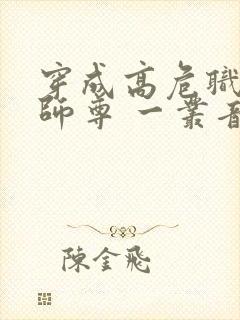 穿成高危職
師尊 一叢音
陳金飛